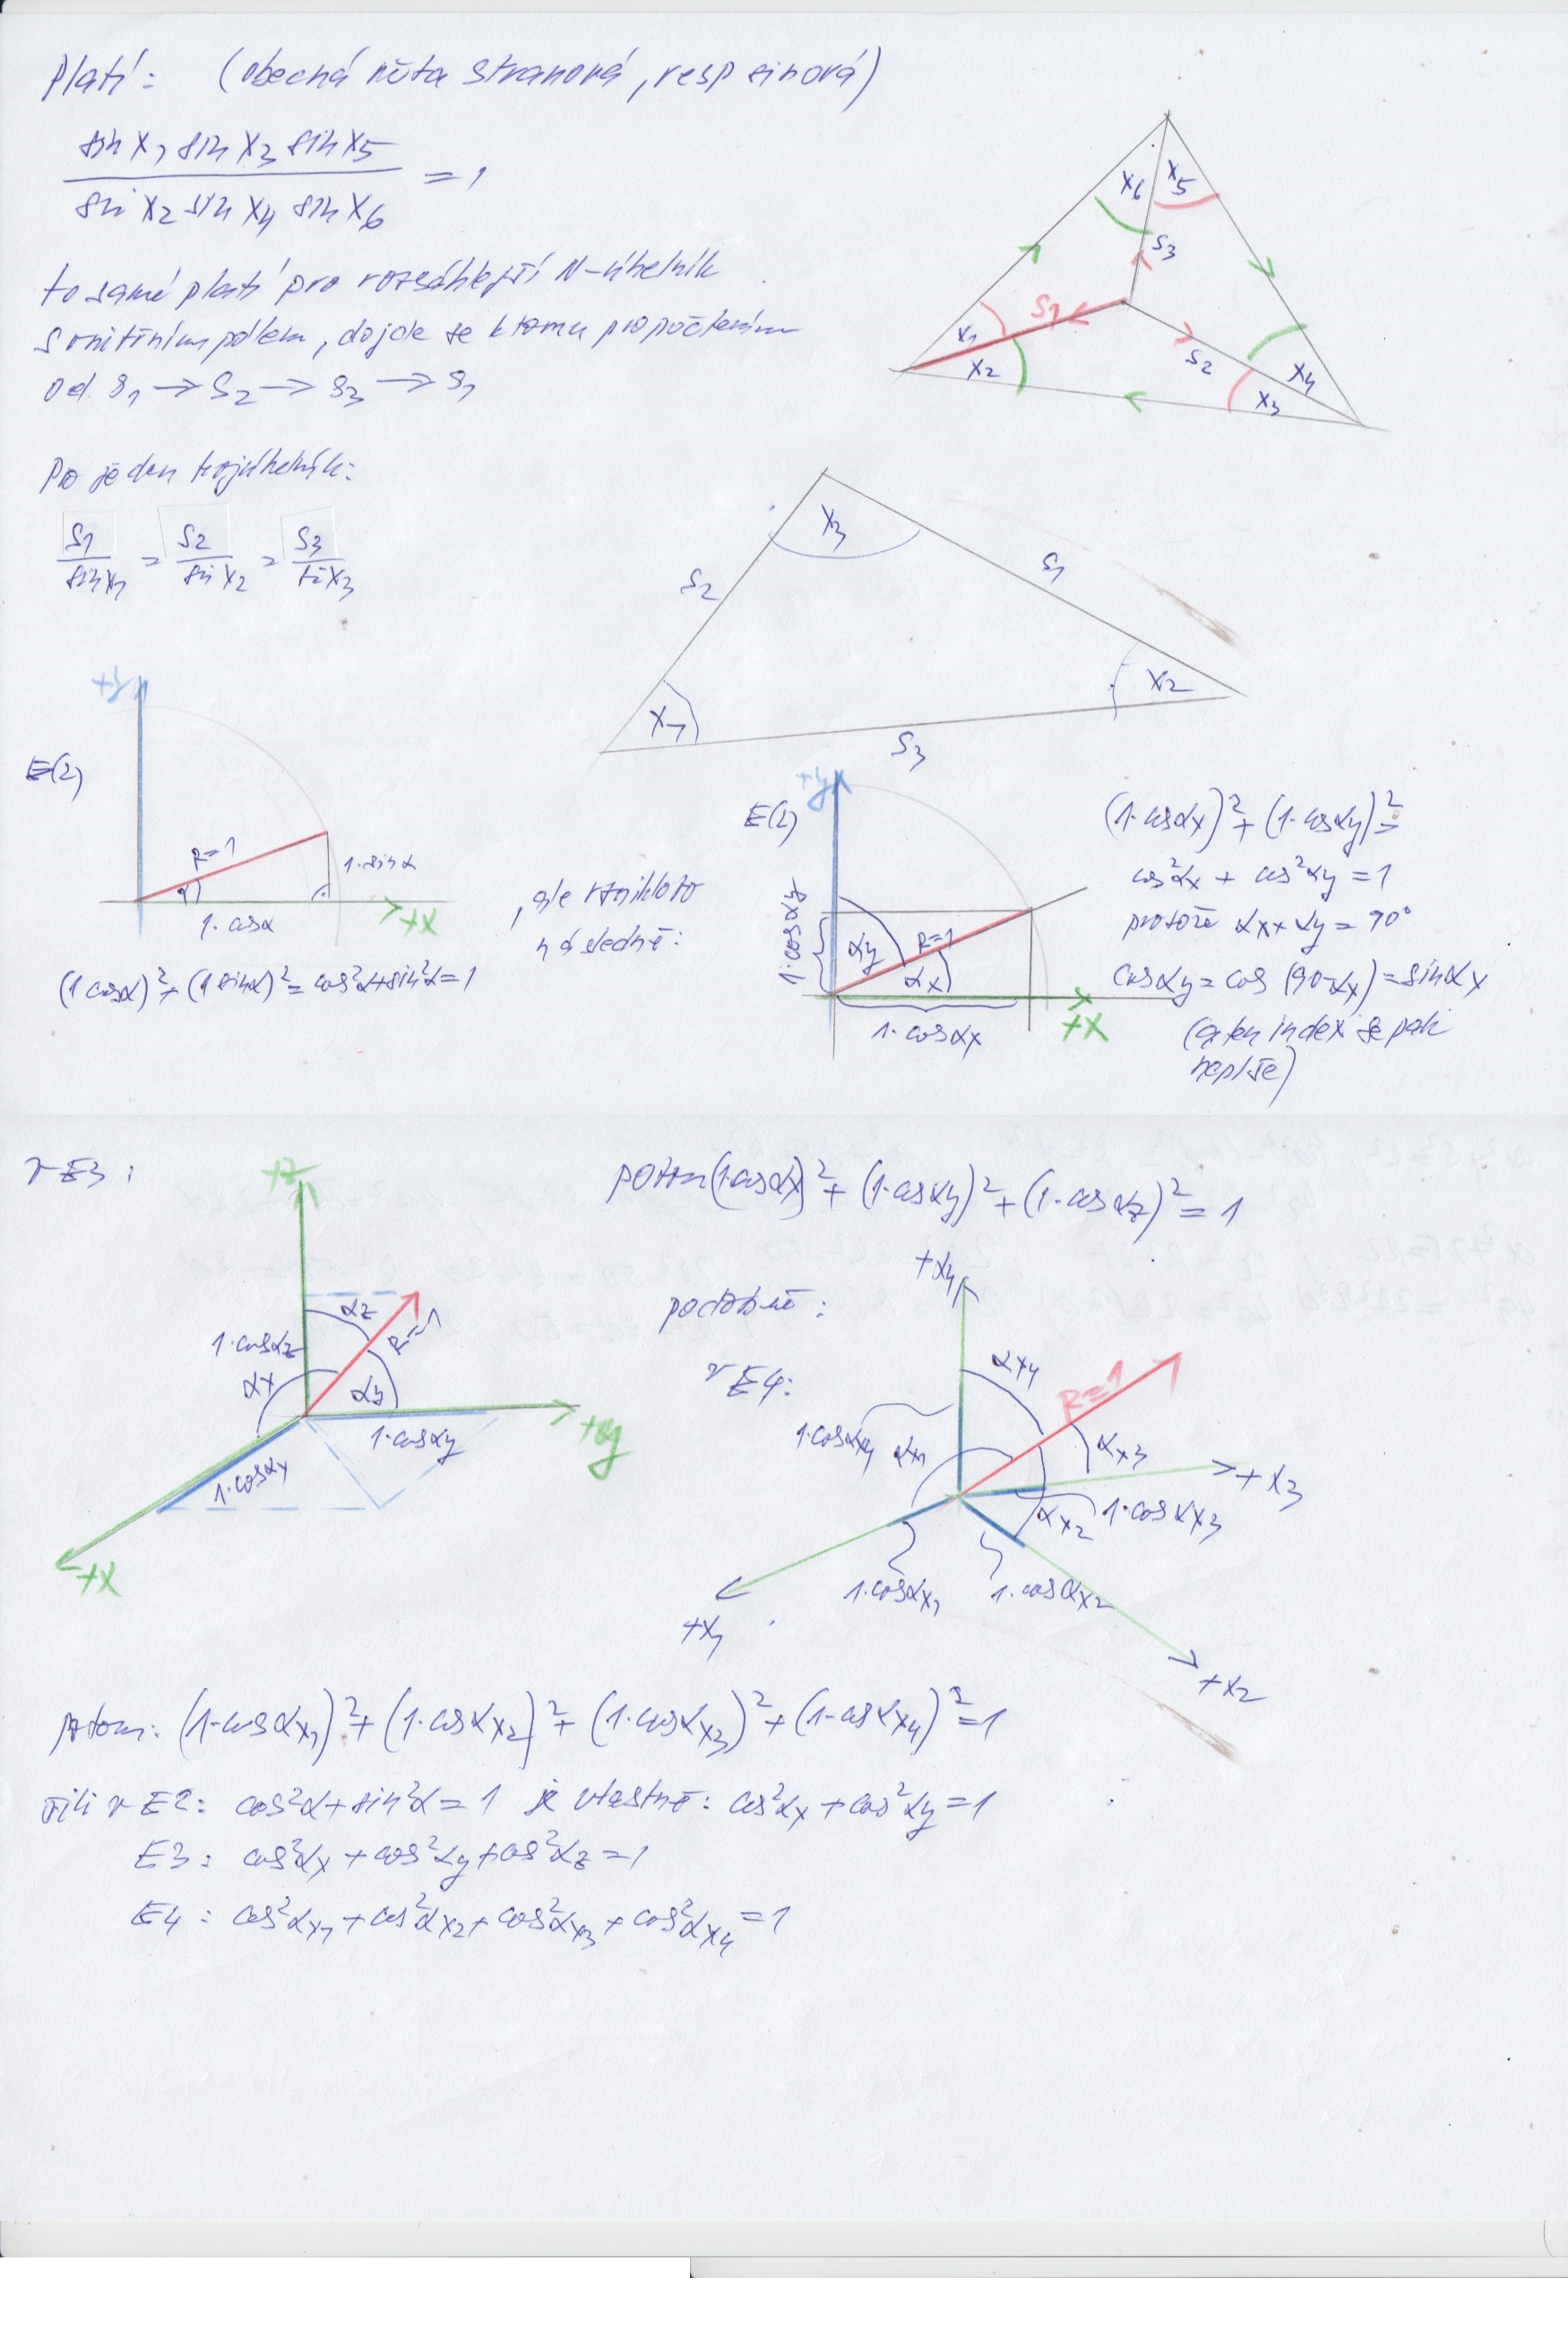 Platí: (obecná věta stranová, resp sinová)
sin x1 sin x3 sin x5
sin x2 sin x4 sin x6
= 1
to samé platí pro rozsáhlejší N-úhelník
s vnitřním pólem, dojde se k tomu propočtením
od s1 → s2 → s3 → s1
x6 x5
s3
s1
x1
x2
s2
x4
x3
Pro jeden trojúhelník:
s1/sin x1 = s2/sin x2 = s3/sin x3
x3
s2
s1
x1
x2
s3
+y
E(2)
R=1
α
1·sinα
1·cosα
+x
(1·cosα)² + (1·sinα)² = cos²α + sin²α = 1
, ale vzniklo to
následně:
+y
E(2)
1·cosαy
αy
R=1
αx
1·cosαx
+x
(1·cosαx)² + (1·cosαy)² =
cos²αx + cos²αy = 1
protože αx + αy = 90°
cosαy = cos (90-αx) = sinαx
(a ten index se pak
nepíše)
v E3:
+z
αz
R=1
1·cosαz
αx
αy
1·cosαy
+y
1·cosαx
+x
potom (1·cosαx)² + (1·cosαy)² + (1·cosαz)² = 1
podobně:
v E4:
+x4
αx4
R=1
1·cosαx4
αx1
αx3
+x3
αx2
1·cosαx3
1·cosαx1
1·cosαx2
+x1
+x2
potom: (1·cosαx1)² + (1·cosαx2)² + (1·cosαx3)² + (1·cosαx4)² = 1
čili v E2: cos²α + sin²α = 1 je vlastně: cos²αx + cos²αy = 1
E3: cos²αx + cos²αy + cos²αz = 1
E4: cos²αx1 + cos²αx2 + cos²αx3 + cos²αx4 = 1